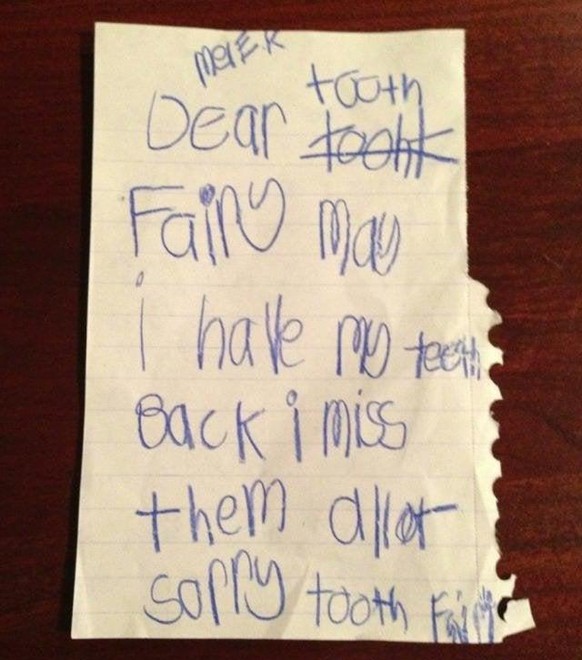 Dear tooth
Fairy may
i have my teeth
Back i miss
them allot
sorry tooth Fairy